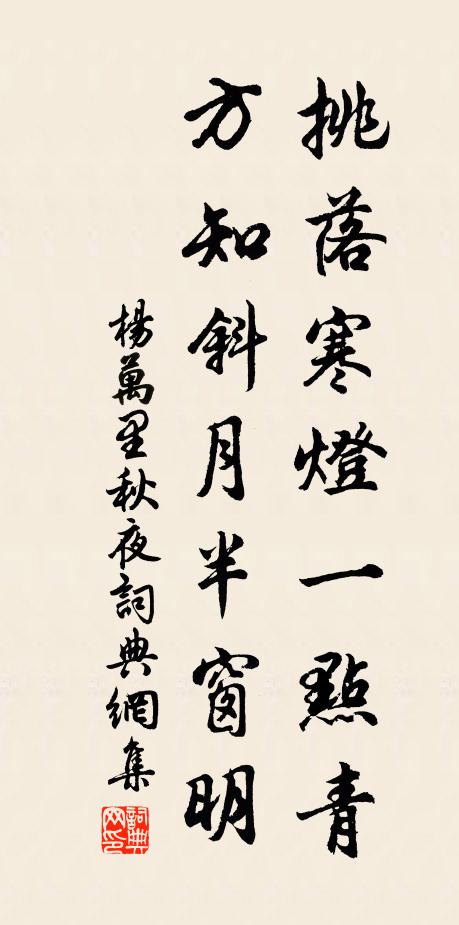 挑落寒燈一點青
方知斜月半窗明
楊萬里秋夜詞典網集
詞典網印